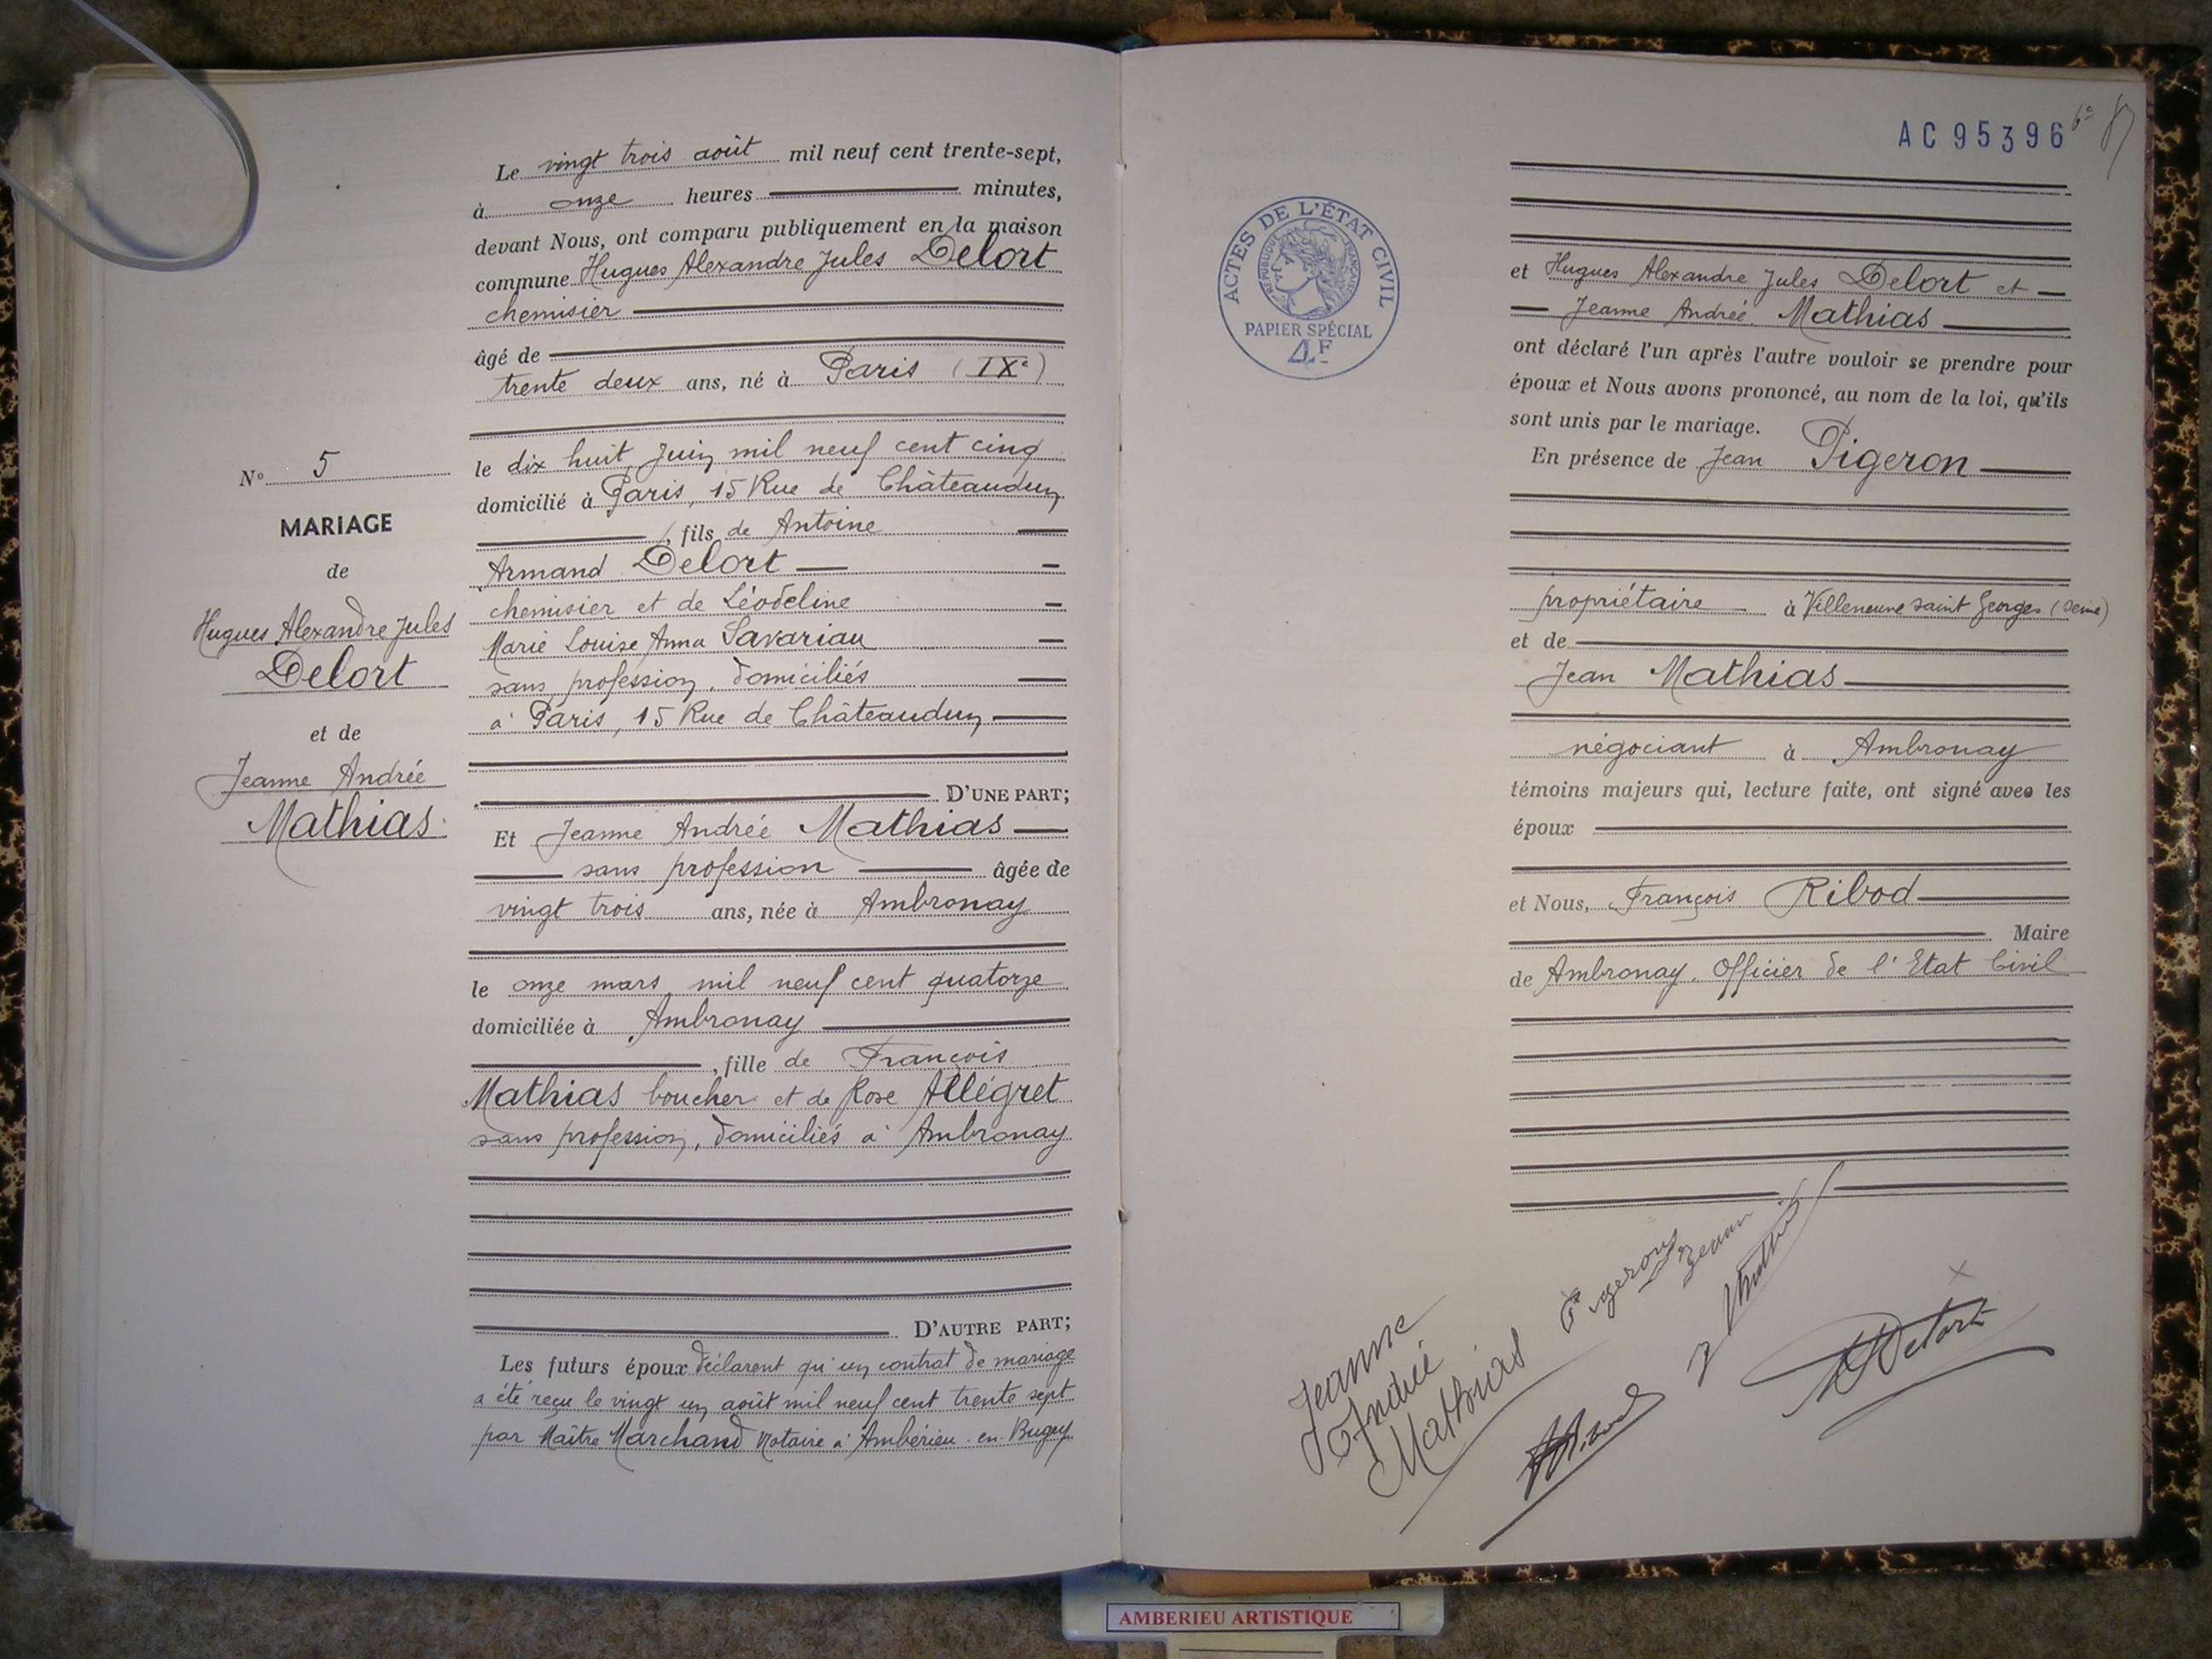 Le vingt trois août mil neuf cent trente-sept,
à onze heures minutes,
devant Nous, ont comparu publiquement en la maison
commune Hugues Alexandre Jules Delort
chemisier
âgé de
trente deux ans, né à Paris (IXe)
le dix huit Juin mil neuf cent cinq
domicilié à Paris, 15 Rue de Châteaudun
, fils de Antoine
Armand Delort
chemisier et de Léodeline
Marie Louise Anna Savariau
sans profession, domiciliés
à Paris, 15 Rue de Châteaudun
D'UNE PART;
Et Jeanne Andrée Mathias
sans profession âgée de
vingt trois ans, née à Ambronay
le onze mars mil neuf cent quatorze
domiciliée à Ambronay
, fille de François
Mathias boucher et de Rose Allégret
sans profession, domiciliés à Ambronay
D'AUTRE PART;
Les futurs époux déclarent qu'un contrat de mariage
a été reçu le vingt un août mil neuf cent trente sept
par Maître Marchand Notaire à Ambérieu-en-Bugey
N° 5
MARIAGE
de
Hugues Alexandre Jules
Delort
et de
Jeanne Andrée
Mathias
AC 95396
ACTES DE L'ÉTAT CIVIL
RÉPUBLIQUE FRANÇAISE
PAPIER SPÉCIAL
4F
et Hugues Alexandre Jules Delort et
Jeanne Andrée Mathias
ont déclaré l'un après l'autre vouloir se prendre pour
époux et Nous avons prononcé, au nom de la loi, qu'ils
sont unis par le mariage.
En présence de Jean Pigeron
propriétaire à Villeneuve saint Georges (Seine)
et de
Jean Mathias
négociant à Ambronay
témoins majeurs qui, lecture faite, ont signé avec les
époux
et Nous, François Ribod
Maire
de Ambronay, Officier de l'Etat Civil
Jeanne
Andrée
Mathias
Pigeron
Jean
AMBERIEU ARTISTIQUE